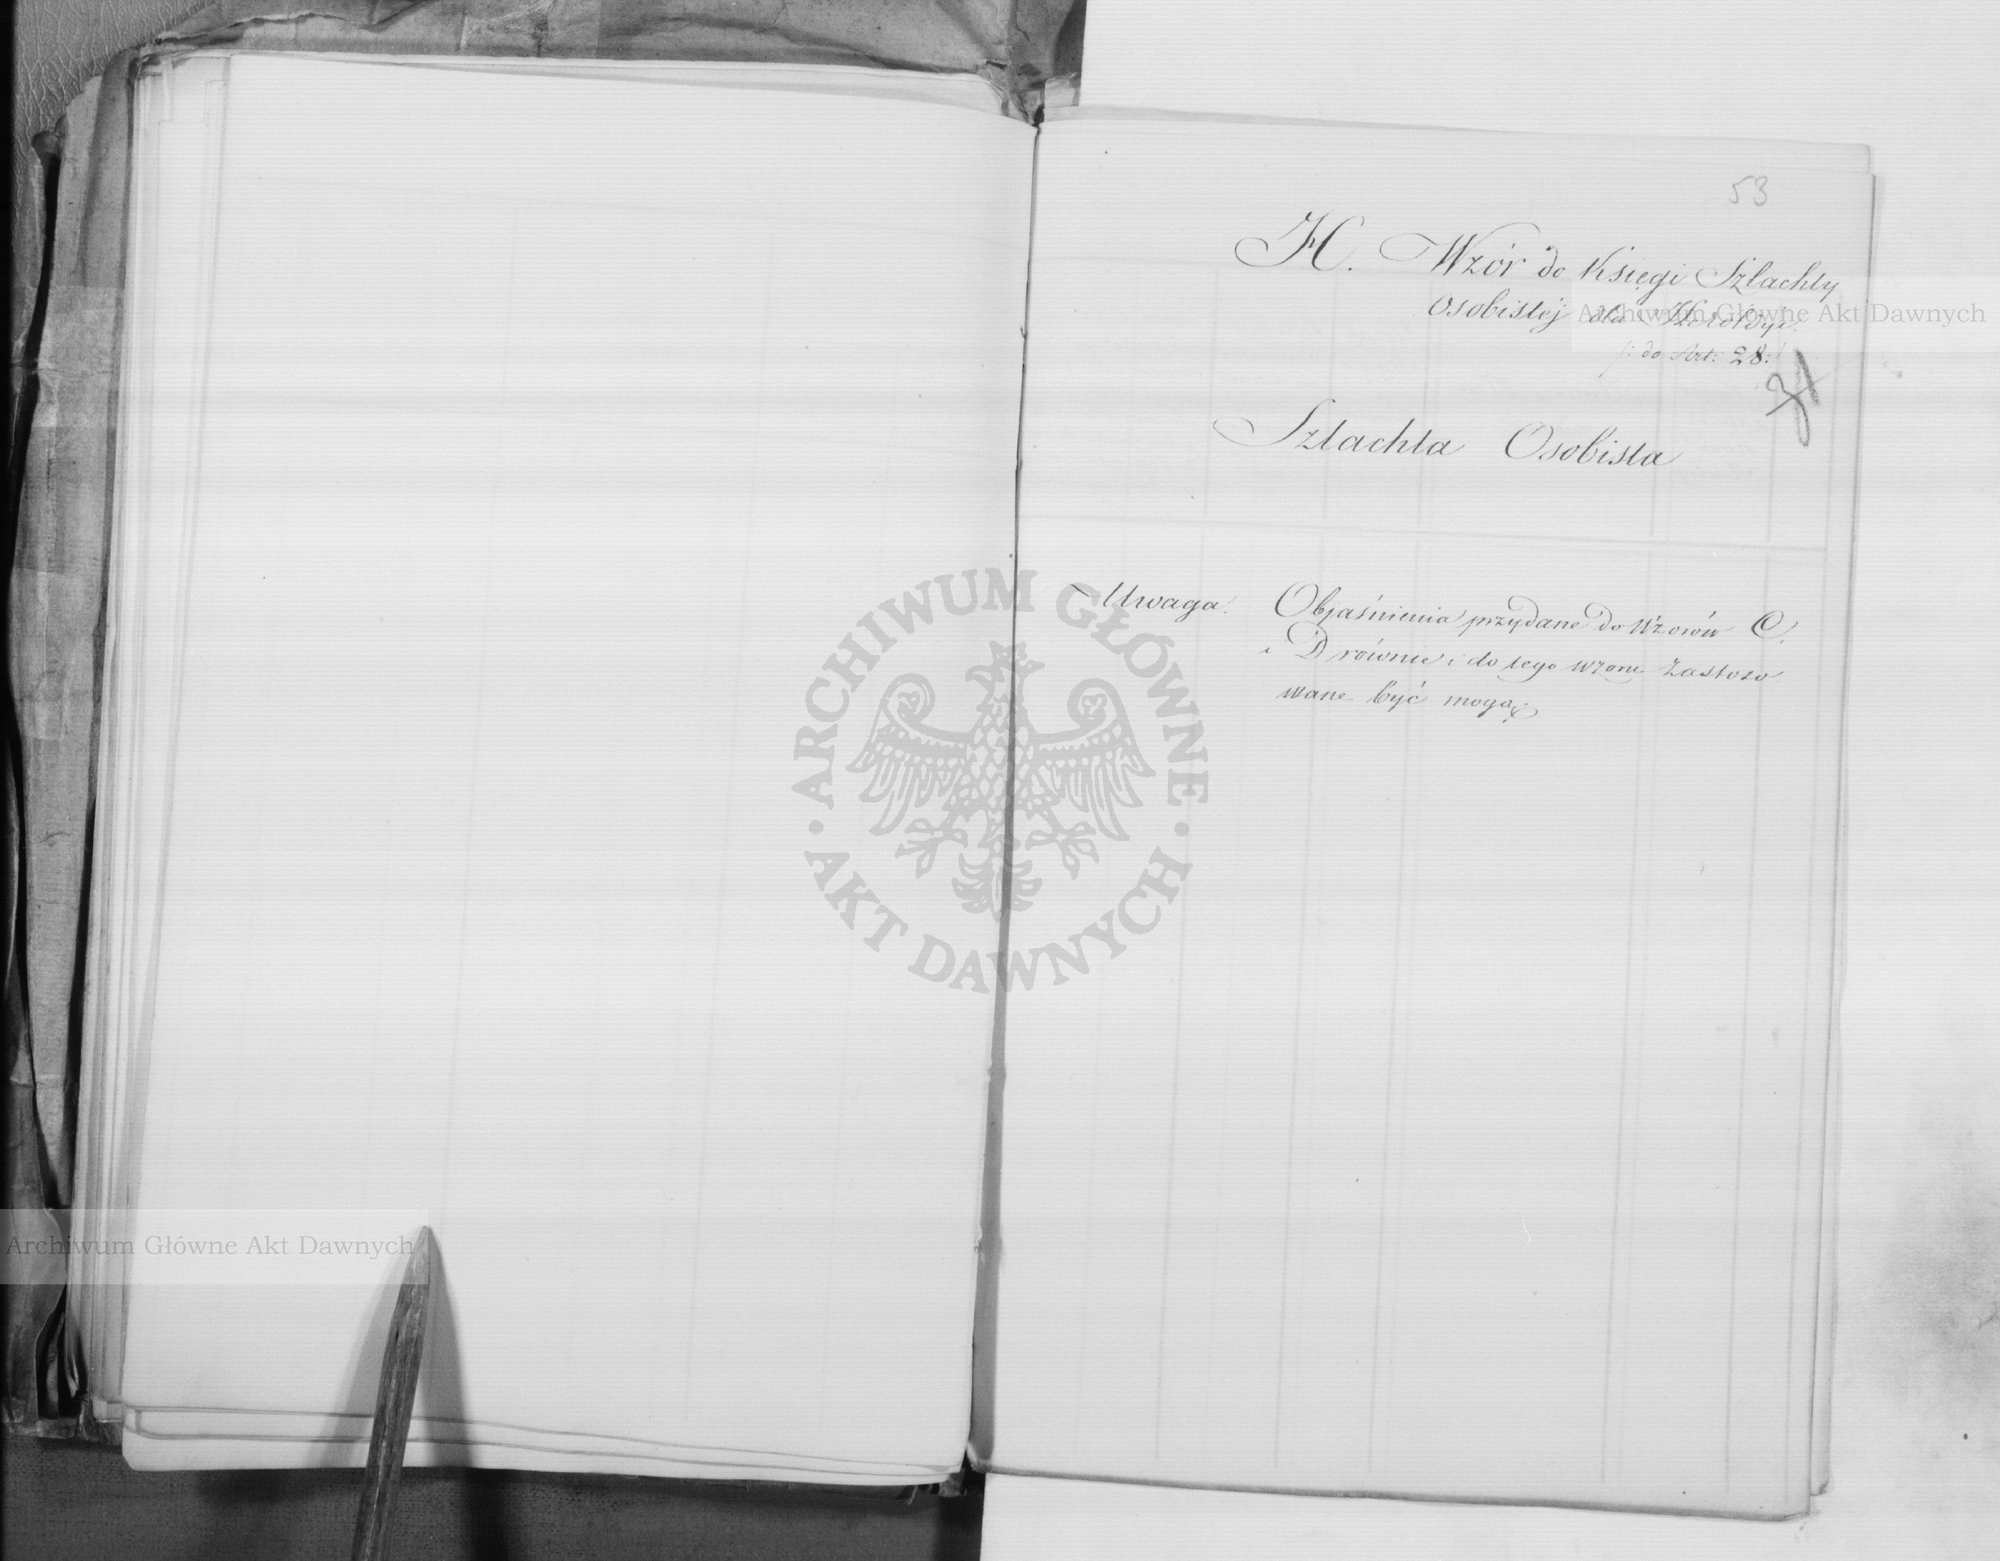 53
H. Wzór do Księgi Szlachty
Osobistéj dla Heroldyi.
/: do Art: 28:/
Szlachta Osobista
Uwaga. Objaśnienia przydane do Wzorów C.
i D równie i do tego wzoru zastoso
wane być mogą.
Archiwum Główne Akt Dawnych
ARCHIWUM GŁÓWNE
AKT DAWNYCH
Archiwum Główne Akt Dawnych